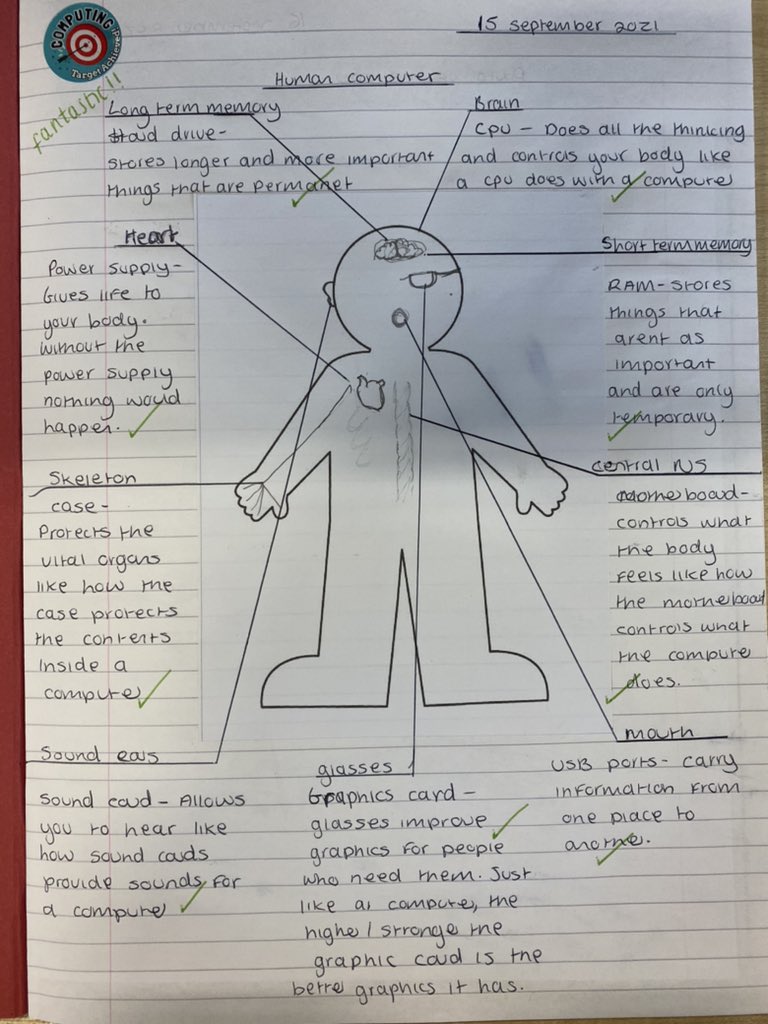 COMPUTING
Target Achieved
fantastic!!
15 September 2021
Human computer
Long term memory
Hard drive-
stores longer and more important
things that are permanet
Brain
CPU - Does all the thinking
and controls your body like
a cpu does with a computer
Heart
Power supply-
Gives life to
your body.
without the
power supply
nothing would
happen.
Short term memory
RAM- stores
things that
arent as
important
and are only
temporary.
Skeleton
case-
Protects the
vital organs
like how the
case protects
the contents
inside a
computer
central NS
motherboard-
controls what
the body
feels like how
the motherboard
controls what
the computer
does.
Sound ears
Sound card - Allows
you to hear like
how sound cards
provide sounds for
a computer
glasses
Graphics card -
glasses improve
graphics for people
who need them. Just
like a computer, the
higher/stronger the
graphic card is the
better graphics it has.
mouth
USB ports- carry
information from
one place to
another.